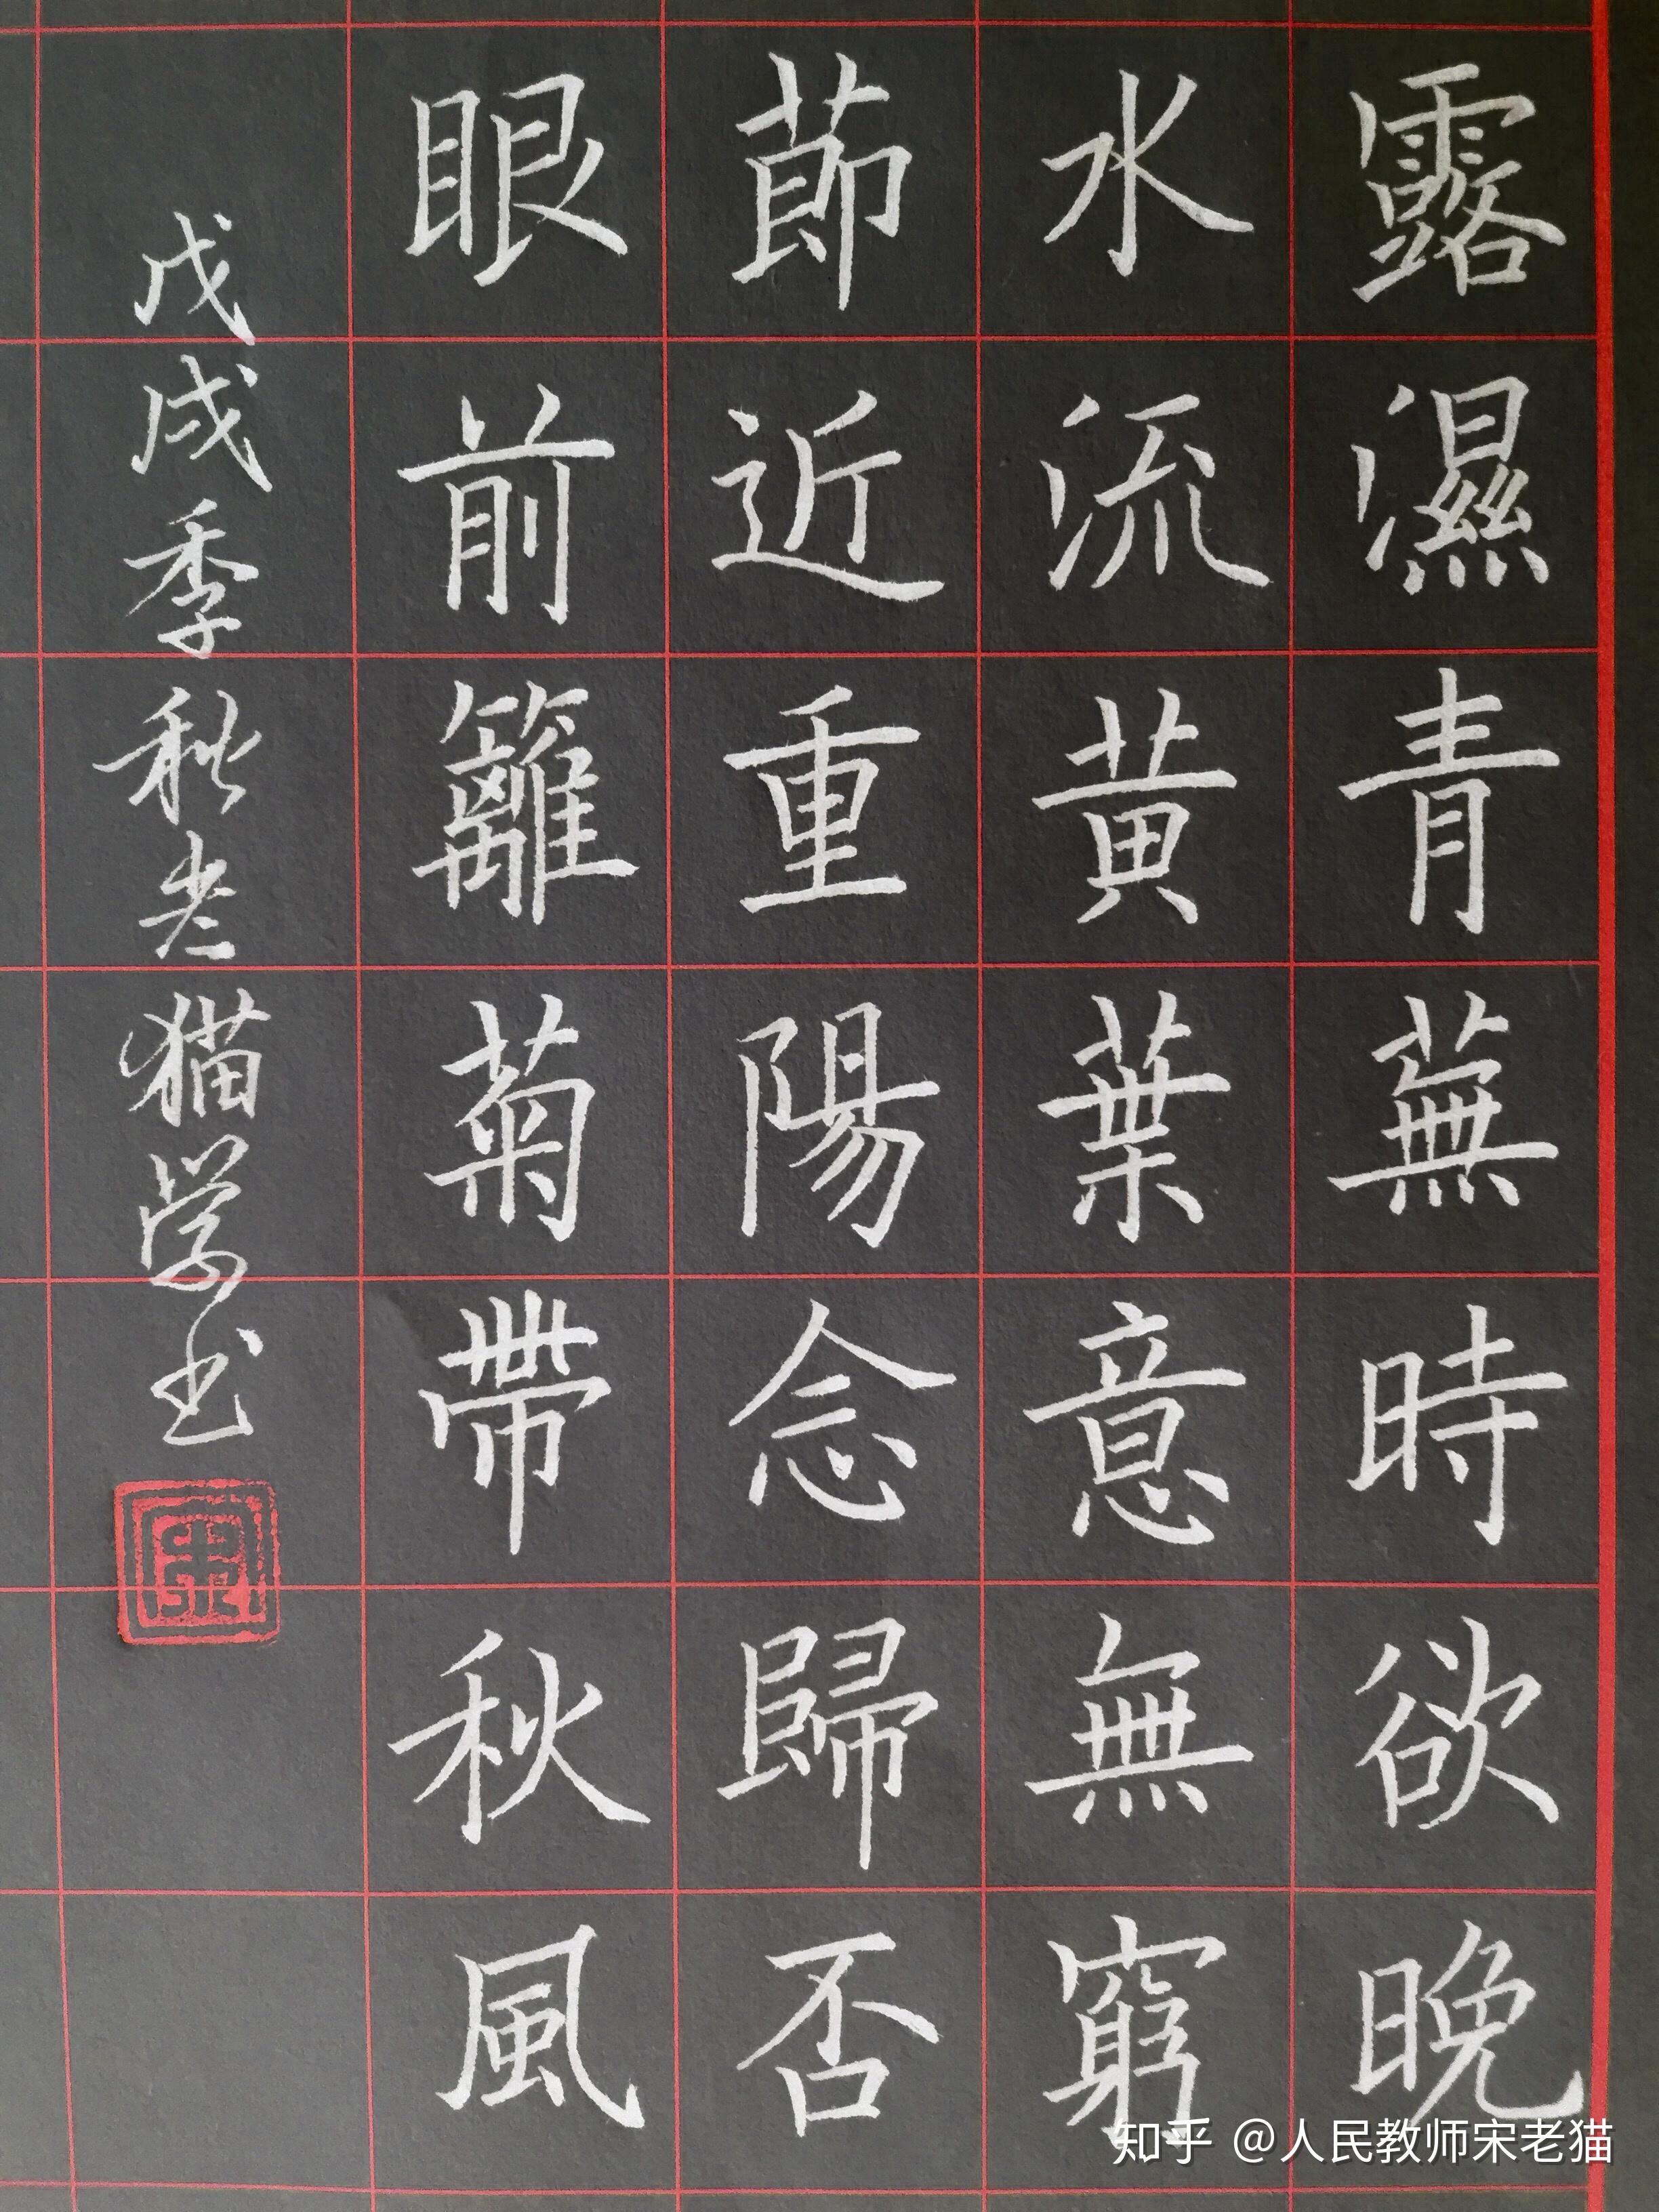 露濕青蕪時欲晚
水流黃葉意無窮
節近重陽念歸否
眼前籬菊帶秋風
戊戌季秋老猫学书
宋
知乎 @人民教师宋老猫